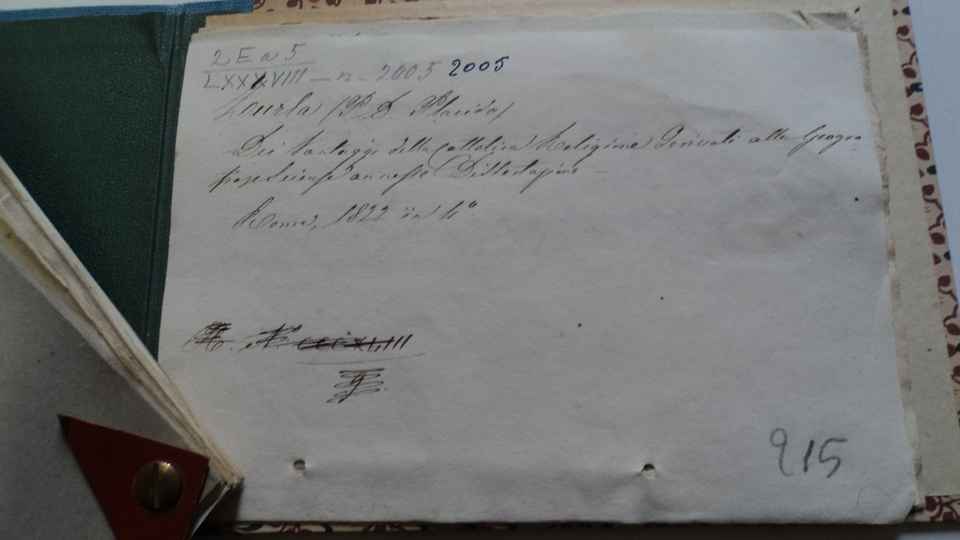 2 E a 5
LXXXVIII - n - 2005 2005
Zurla (P. D. Placido)
Dei Vantaggi della Cattolica Religione Derivati alla Geogra
fia e Scienze annesse Dissertazione -
Roma, 1822 in 4°
215